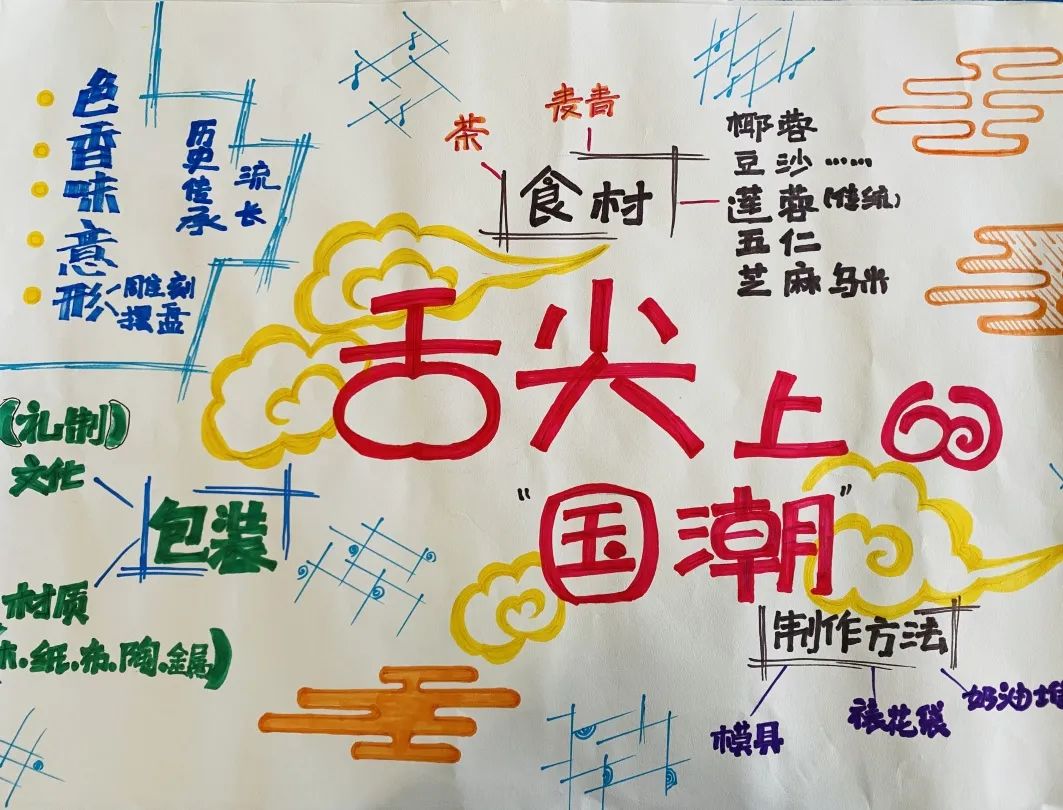 色
香
味
意
形
雕刻
摆盘
历史传承
流长
茶
麦青
食材
椰蓉
豆沙……
莲蓉(传统)
五仁
芝麻乌米
舌尖上的
"国潮"
(礼制)
文化
包装
材质
木.纸.布.陶.金属)
制作方法
模具
裱花袋
奶油